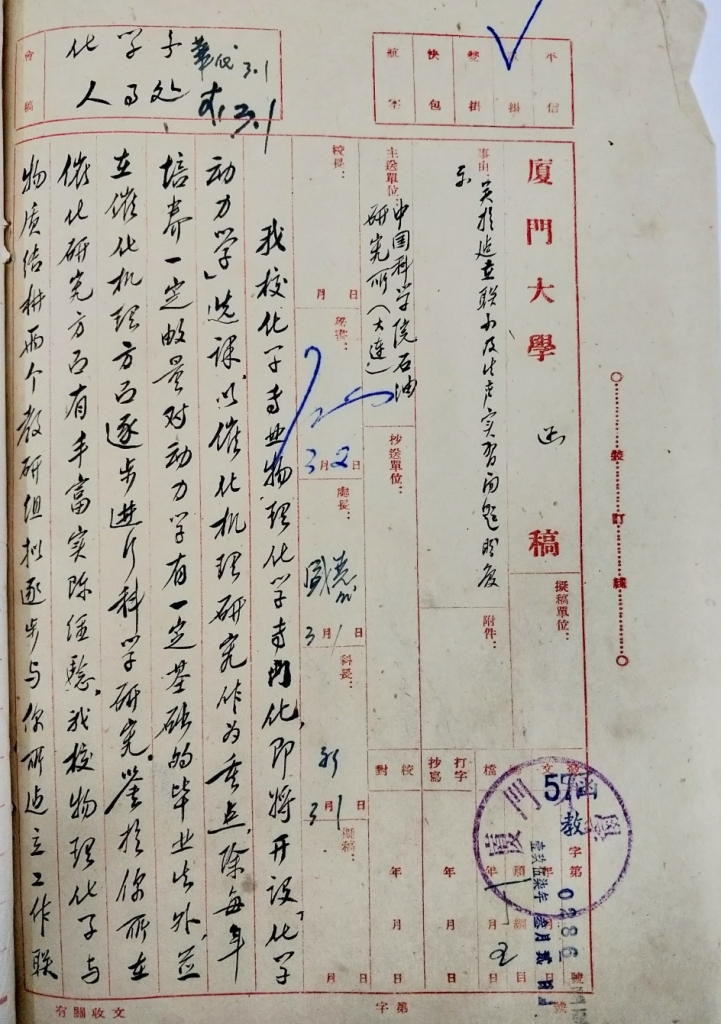 平信
掛
雙掛
快包
航空
會稿
化学系
人事处
3.1
3.1
廈門大學
函
稿
擬稿單位：
事由：关於建立联系及生产实习问题盼复
示
附件：
主送單位：中国科学院石油
研究所（大連）
抄送單位：
打字
抄寫
校對
年月日
年月日
年月日
校長：
月日
秘書：
3月2日
處長：
3月1日
科長：
3月1日
擬稿：
月日
我校化学专业物理化学专门化，即将开设「化学
动力学」选课，以催化机理研究作为重点，除每年
培养一定数量对动力学有一定基础的毕业生外，並
在催化机理方面逐步进行科学研究。鉴於你所在
催化研究方面有丰富实际经验，我校物理化学与
物质结构两个教研组拟逐步与你所建立工作联
裝訂綫
57函
教
字第0286號
壹玖伍柒年叁月貳日
有關收文
字第號